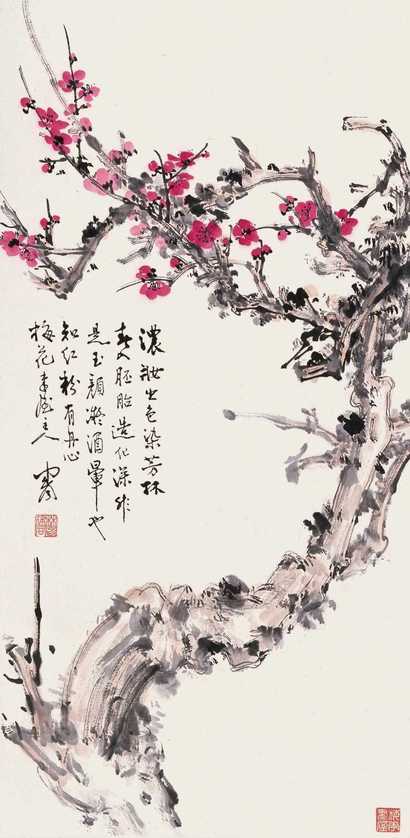 濃妝出色染芳林
春入胚胎造化深非
是玉顏凝酒暈也
知紅粉有丹心
梅花書屋主人